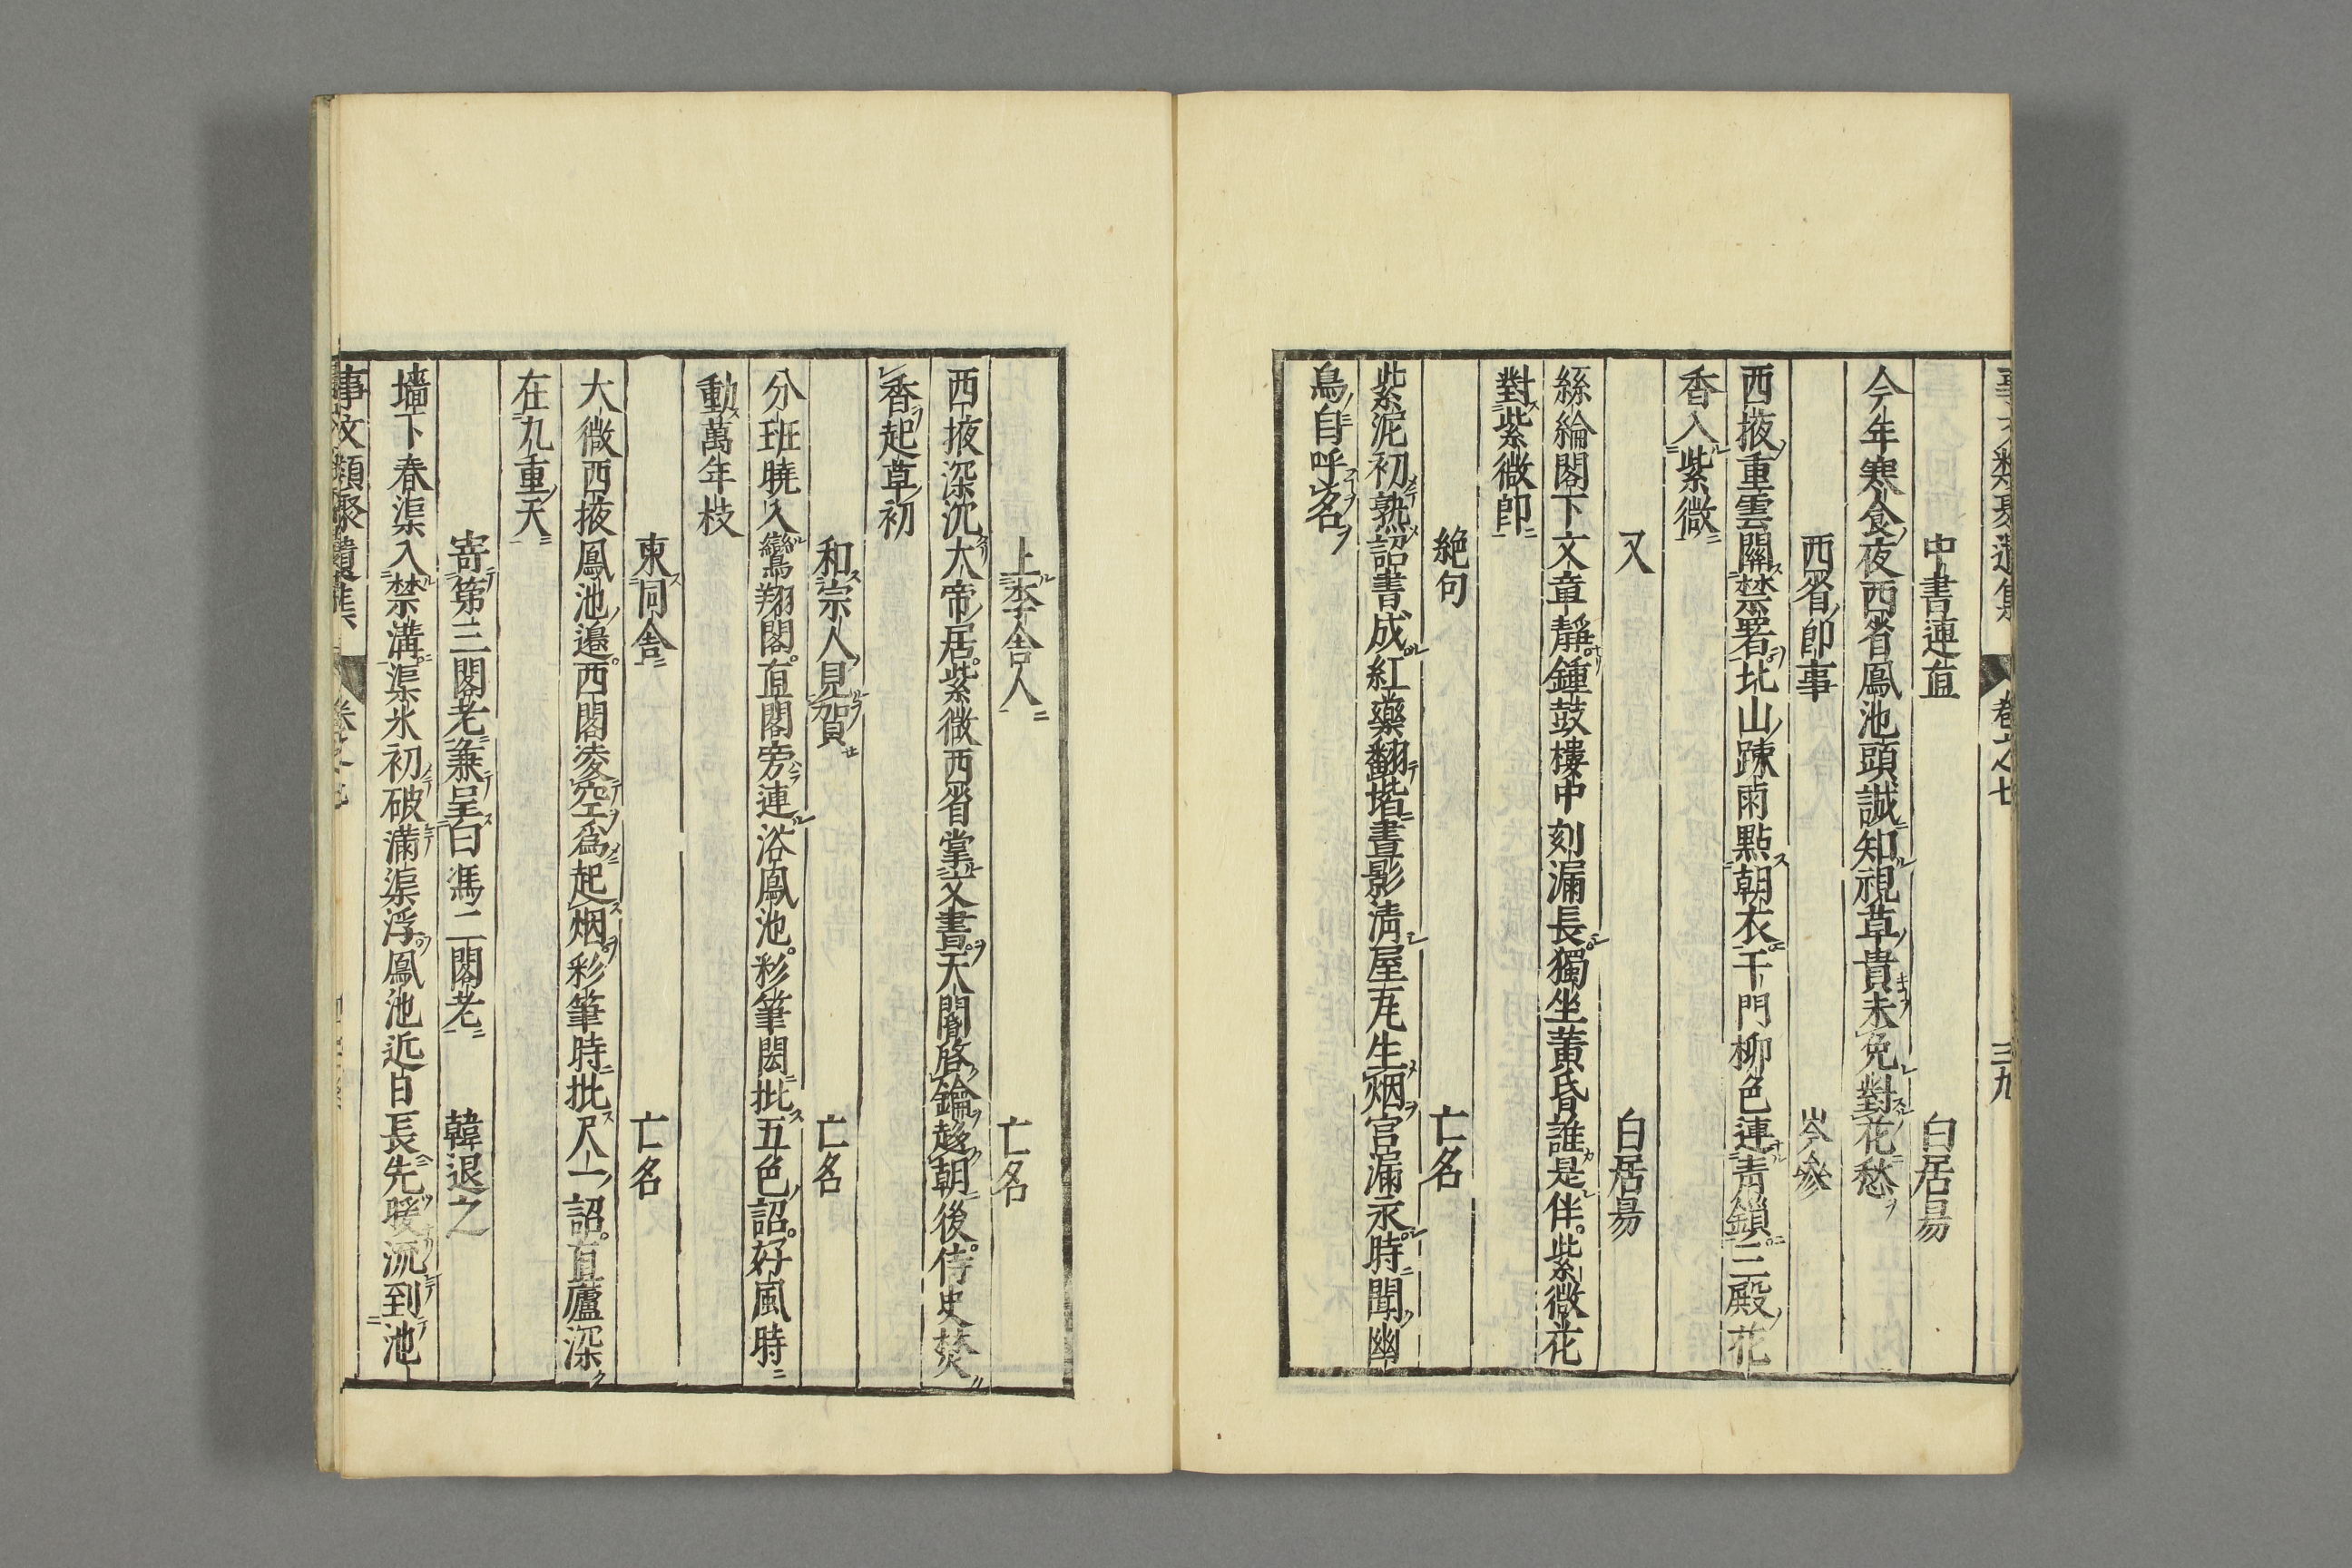 事文類聚遺集 卷之七 三九
中書連直 白居昜
今年寒食夜西省鳳池頭誠知視草貴未免對花愁
西省即事 岑參
西掖重雲關禁署北山踈雨點朝衣千門柳色連青鎖三殿花
香入紫微
又 白居昜
絲綸閣下文章靜鍾鼓樓中刻漏長獨坐黃昏誰是伴紫微花
對紫微郎
絶句 亡名
紫泥初熟詔書成紅藥翻堦晝影淸屋瓦生烟宮漏永時聞幽
鳥自呼名
上李舍人 亡名
西掖深沈大帝居紫微西省掌文書天關啓鑰趍朝後侍史焚
香起草初
和宗人見賀 亡名
分班曉入鸞翔閣直閣旁連浴鳳池彩筆閎批五色詔好風時
動萬年枝
柬同舍 亡名
大微西掖鳳池邉西閣凌空爲起烟彩筆時批尺一詔直廬深
在九重天
寄第三閣老兼呈白馮二閣老 韓退之
墻下春渠入禁溝渠氷初破滿渠浮鳳池近日長先暖流到池
事文類聚遺集 卷之七